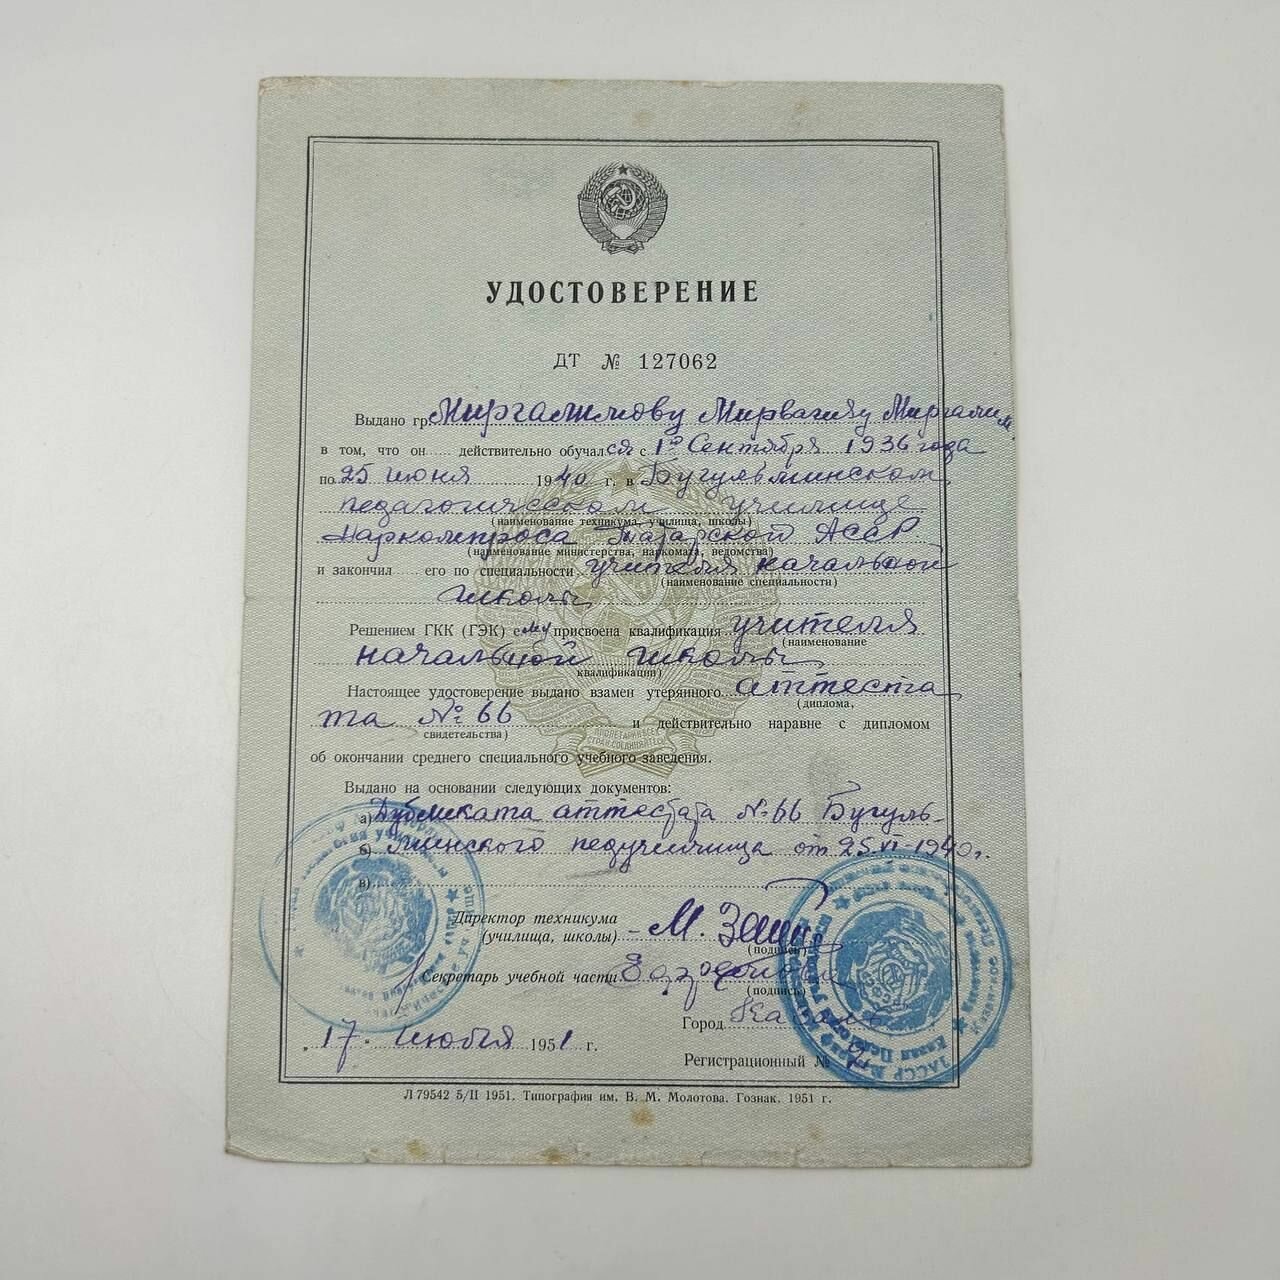 УДОСТОВЕРЕНИЕ
ДТ № 127062
Выдано гр. Миргалимову Мирвагизу Миргалим.
в том, что он действительно обучался с 1го Сентября 1936 года
по 25 июня 1940 г. в Бугульминском
педагогическом училище
(наименование техникума, училища, школы)
Наркомпроса Татарской АССР
(наименование министерства, наркомата, ведомства)
и закончил его по специальности учителя начальной
(наименование специальности)
школы
Решением ГКК (ГЭК) ему присвоена квалификация учителя
(наименование
начальной школы
квалификации)
Настоящее удостоверение выдано взамен утерянного аттеста
(диплома,
та № 66 и действительно наравне с дипломом
свидетельства)
об окончании среднего специального учебного заведения.
Выдано на основании следующих документов:
а) Дубликата аттестата № 66 Бугуль-
б) минского педучилища от 25.VI-1940г.
в)
Директор техникума
(училища, школы) М.
(подпись)
Секретарь учебной части
(подпись)
Город Казань
„17" июля 1951 г.
Регистрационный №
Л 79542 5/II 1951. Типография им. В. М. Молотова. Гознак. 1951 г.